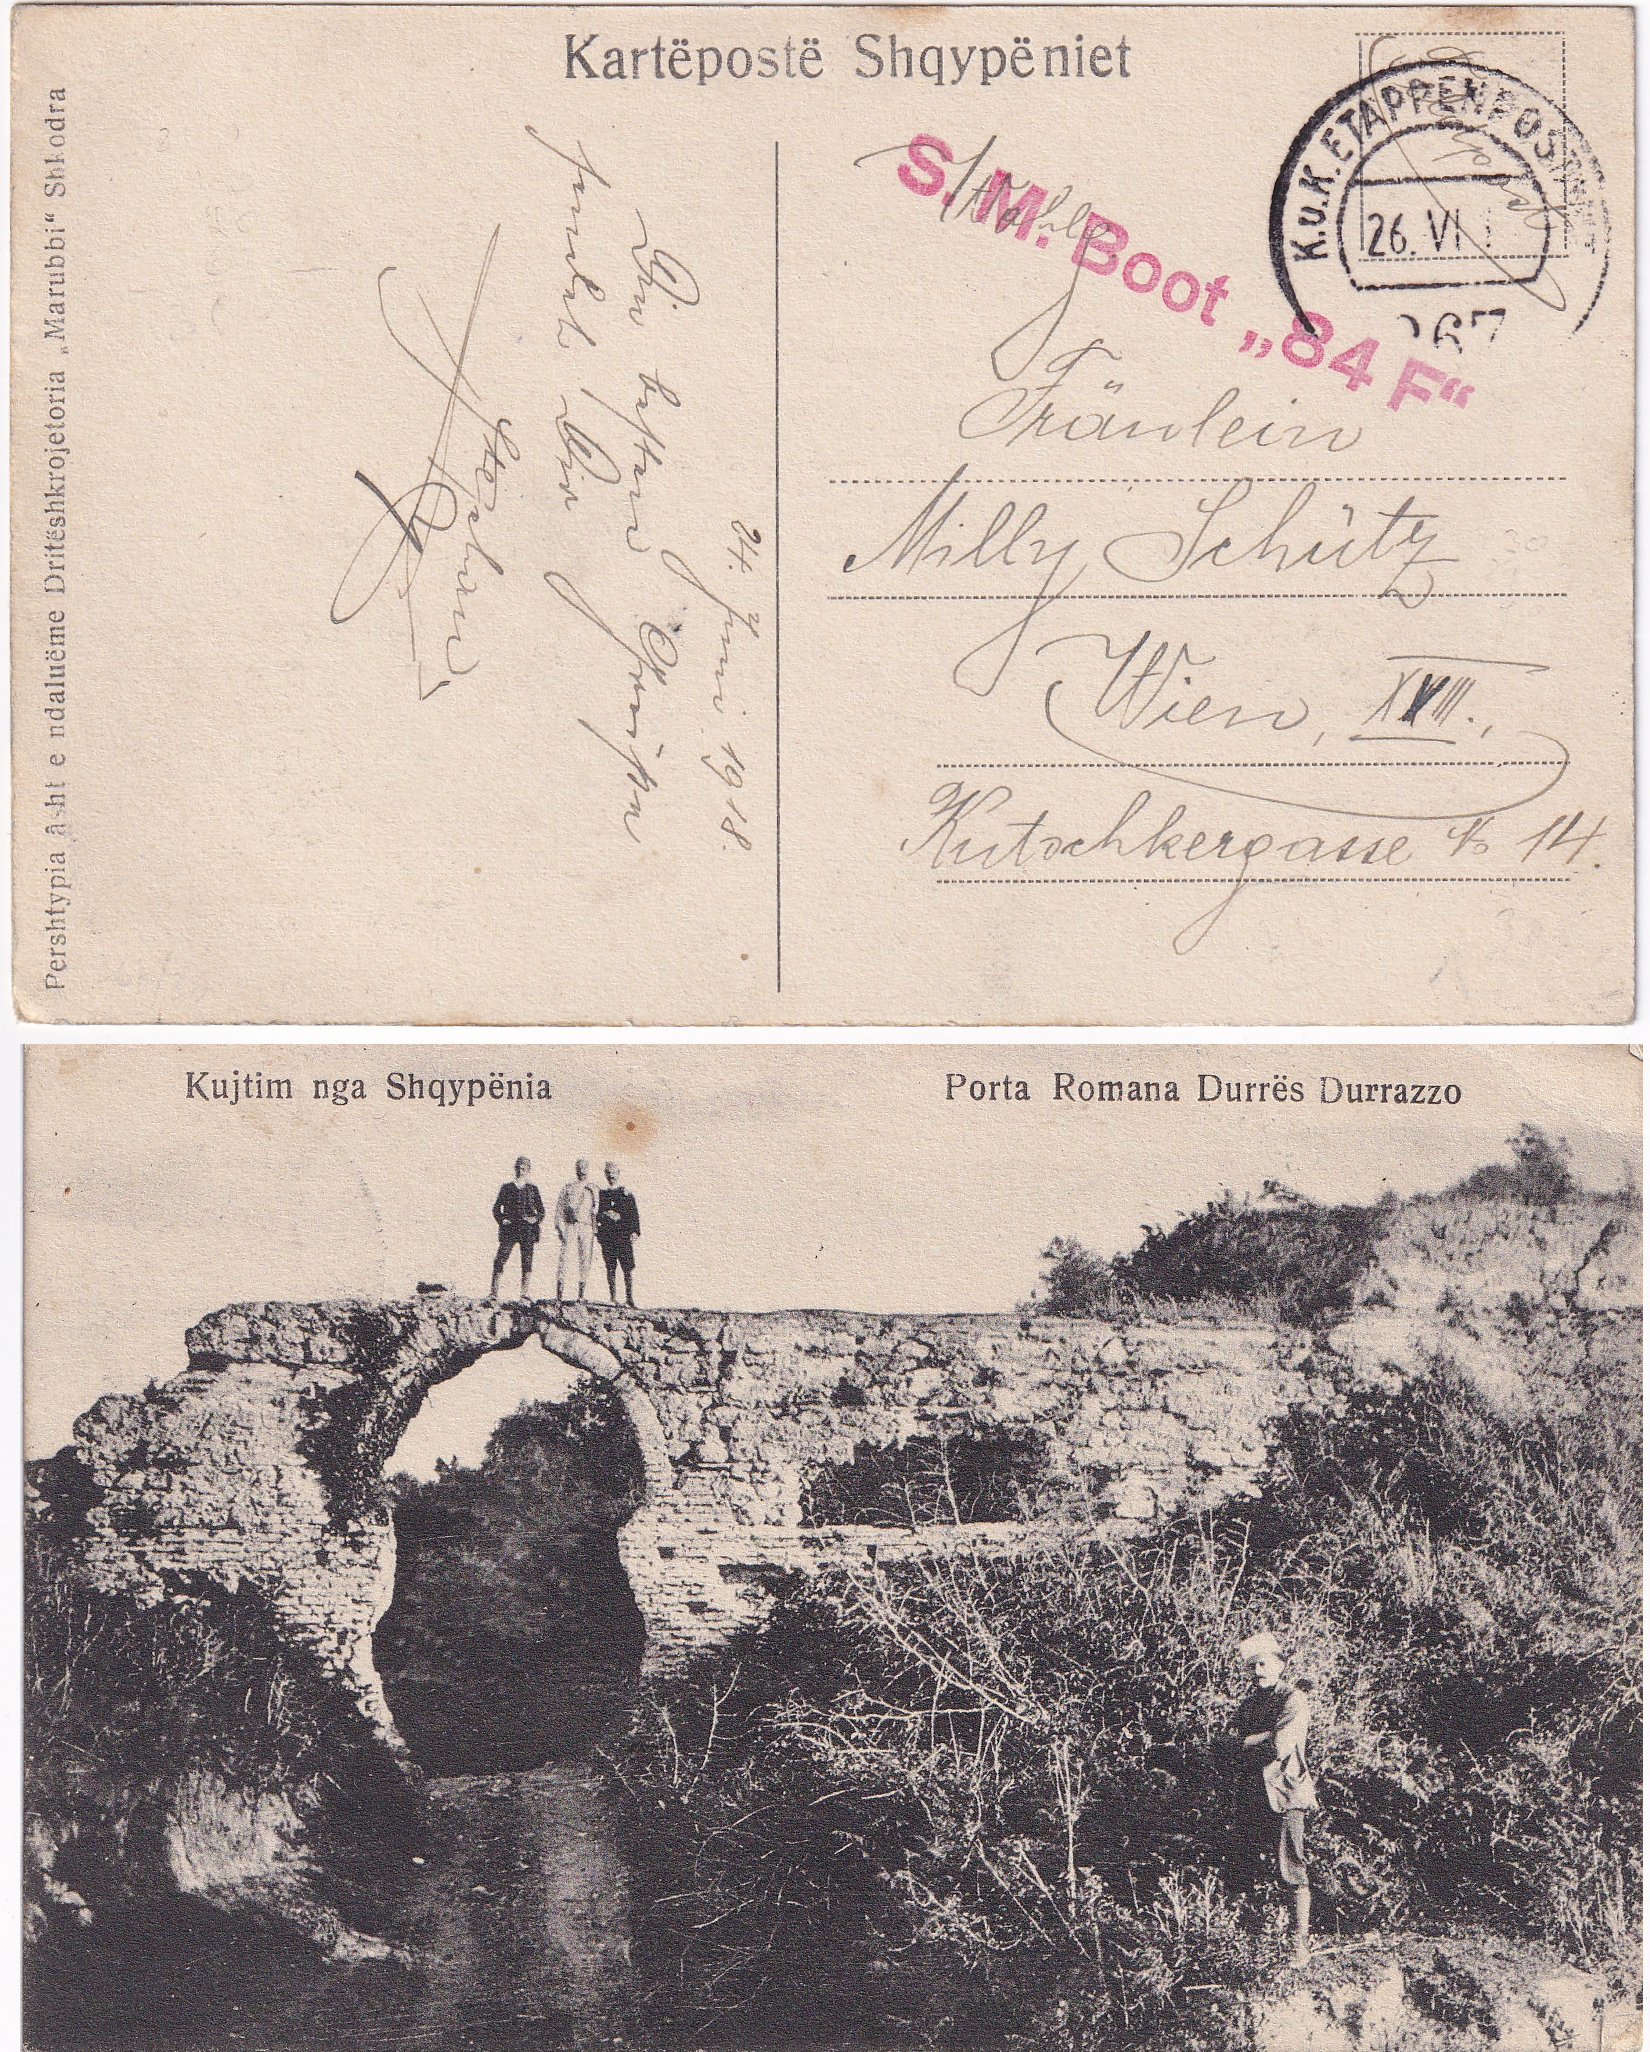 Kartëpostë Shqypëniet
Pershtypia âsht e ndaluëme Dritëshkrojetoria „Marubbi“ Shkodra
24. Juni 1918.
Die besten Grüsse
sendet Dir
Stephan
K.u.K. ETAPPENPOSTAMT
26. VI
267
S. M. Boot „84 F“
Fräulein
Milly Schütz
Wien, XVIII.,
Kutschkergasse № 14.
Kujtim nga Shqypënia
Porta Romana Durrës Durrazzo